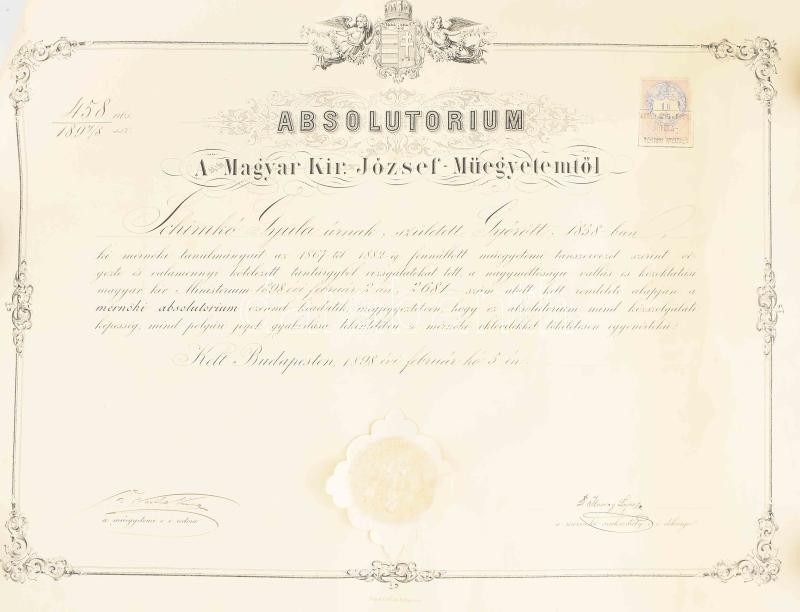 458 rhsz.
1897/8 sz.
ABSOLUTORIUM
A Magyar Kir. József-Müegyetemtől
Schimkó Gyula úrnak, született Győrött, 1858-ban
ki mérnöki tanulmányait az 1867-től 1882-ig fennállott műegyetemi tanszervezet szerint vé-
gezte és valamennyi kötelezett tantárgyból vizsgálatokat tett a nagyméltóságú vallás és közoktatási
magyar kir. Ministerium 1898 évi február 2 án 2681 szám alatt kelt rendelete alapján a
mérnöki absolutorium ezennel kiadatik, megjegyeztetvén, hogy ez absolutorium mind közszolgálati
képesség, mind polgári jogok gyakorlása tekintetében a mérnöki oklevelekkel tökéletesen egyenértékű.
Kelt Budapesten, 1898 évi február hó 5 én
a műegyetemi e. i. rectora
a mérnöki szakosztály e. i. dékánja